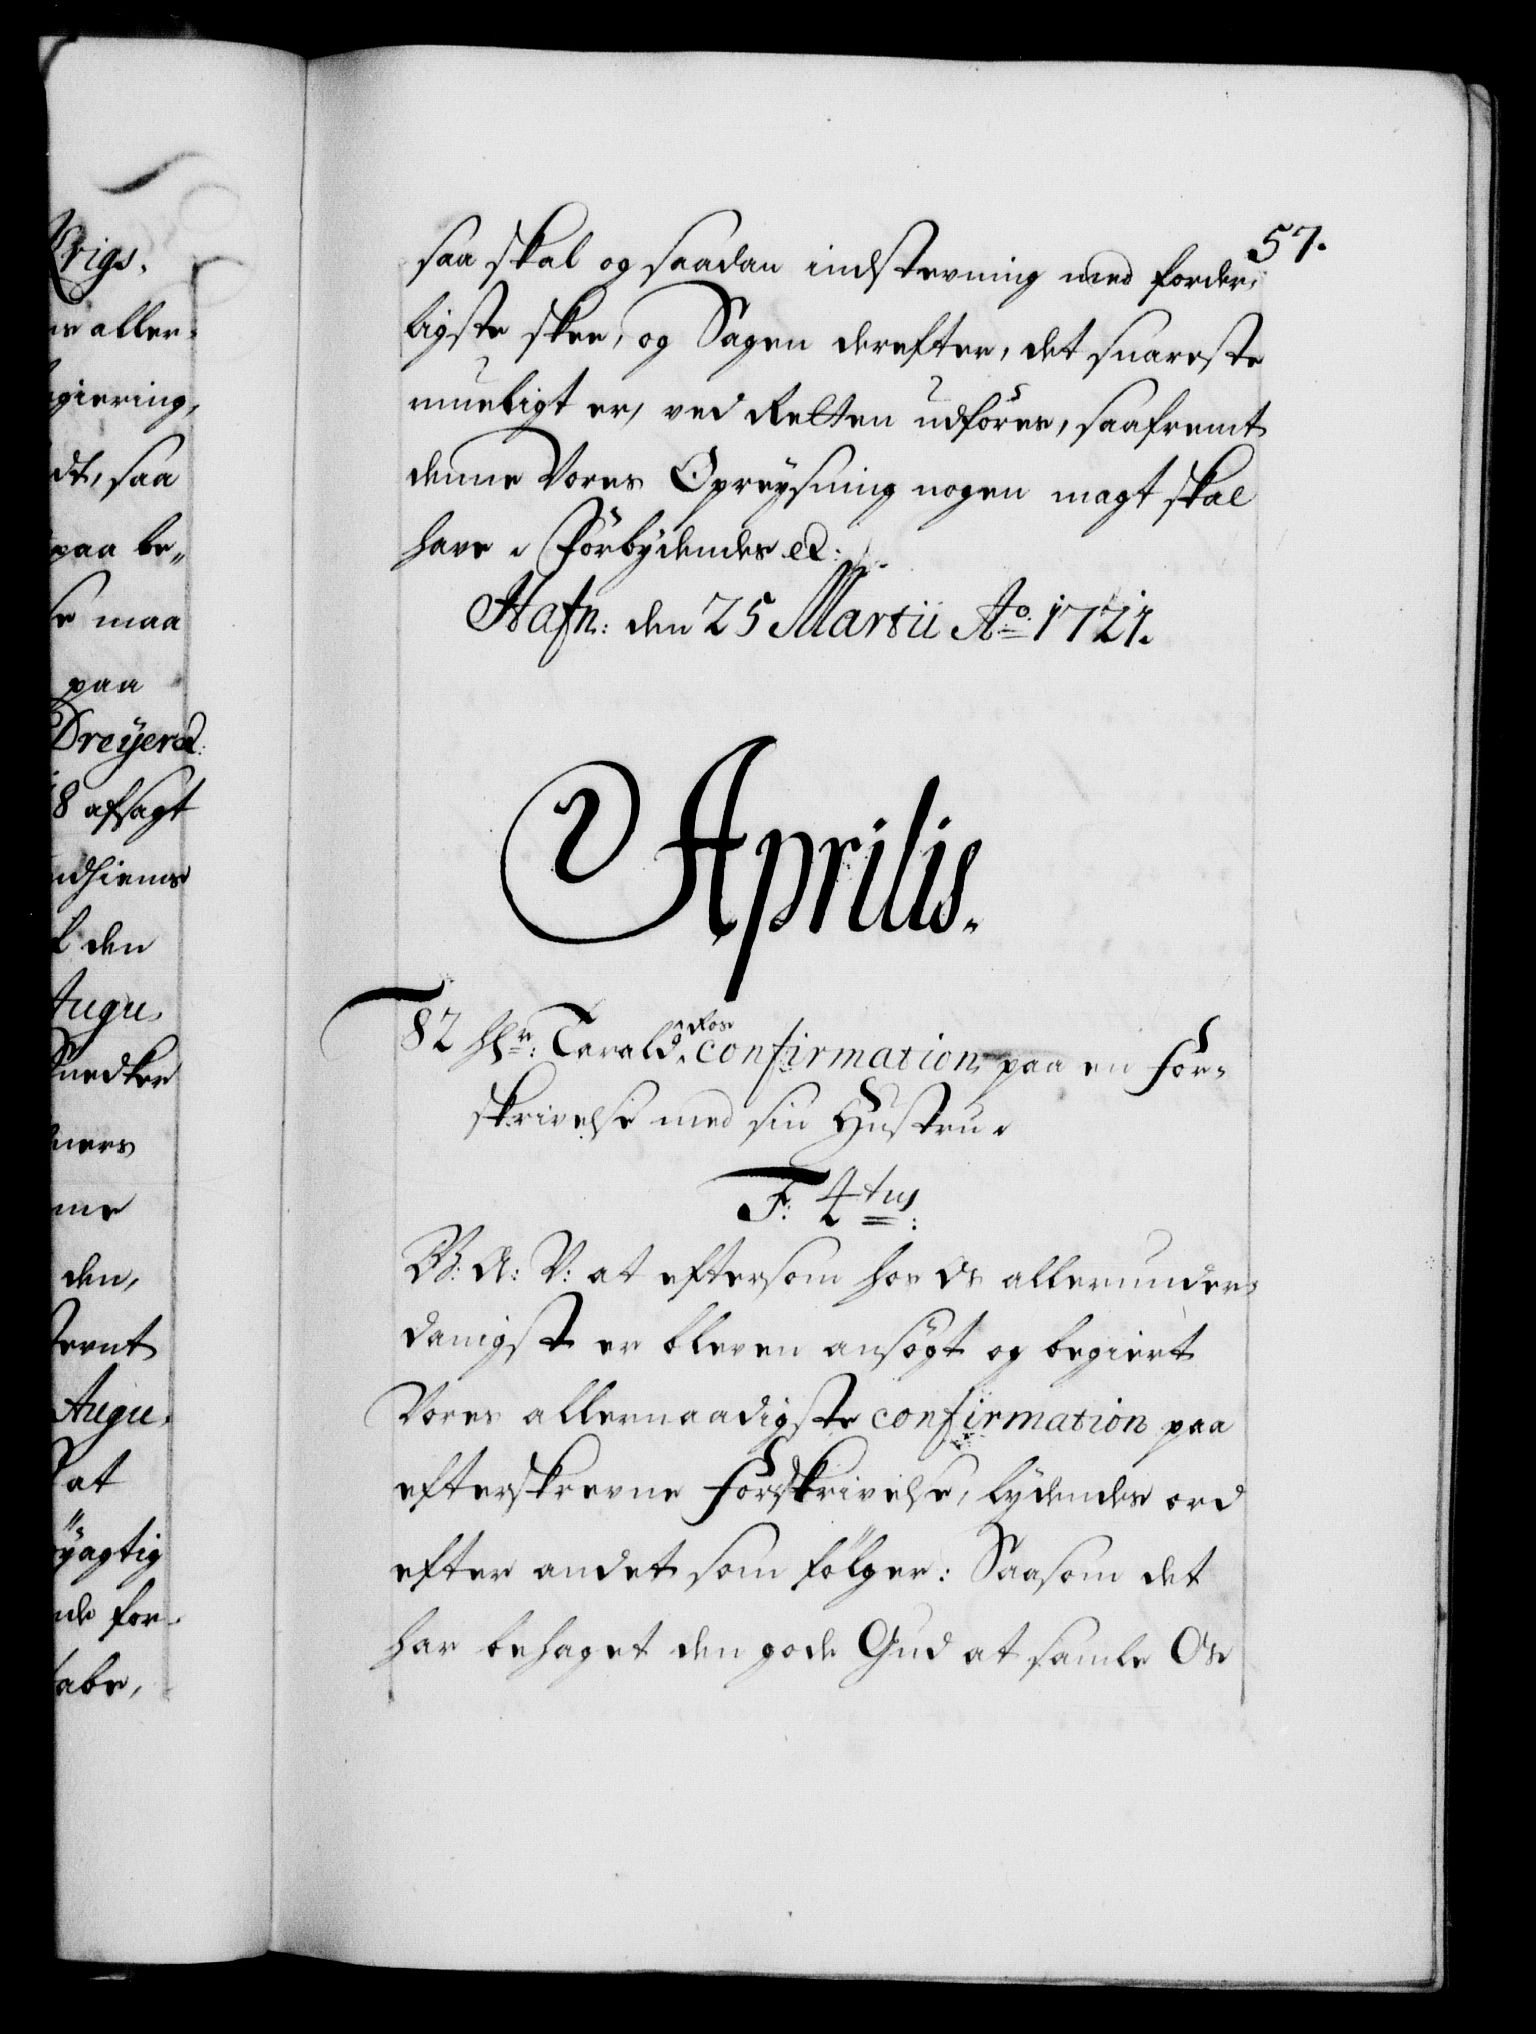 Krigs,
aller-
giering,
dt, saa
paa be-
maa
paa
Dreyer &:
8 afsagt
den
Augu-
Snedker
den,
Augu-
at
for-
57.
saa skal og saadan indstevning med forder-
ligste skee, og Sagen derefter, det snareste
mueligt er, ved Retten udföres, saafremt
denne Vores Opreysning nogen magt skal
have. Forbydendes &:
Hafn: den 25 Martii Ao. 1721.
Aprilis.
82 Hr: Terald Ros confirmation paa en For-
skrivelse med sin Hustrue
F: 4tus:
G: A: V: at eftersom hos Os allerunder-
danigst er bleven ansögt og begiert
Vores allernaadigste confirmation paa
efterskrevne Forskrivelse, lydendes ord
efter andet som fölger: Saasom det
har behaget den gode Gud at samle Os